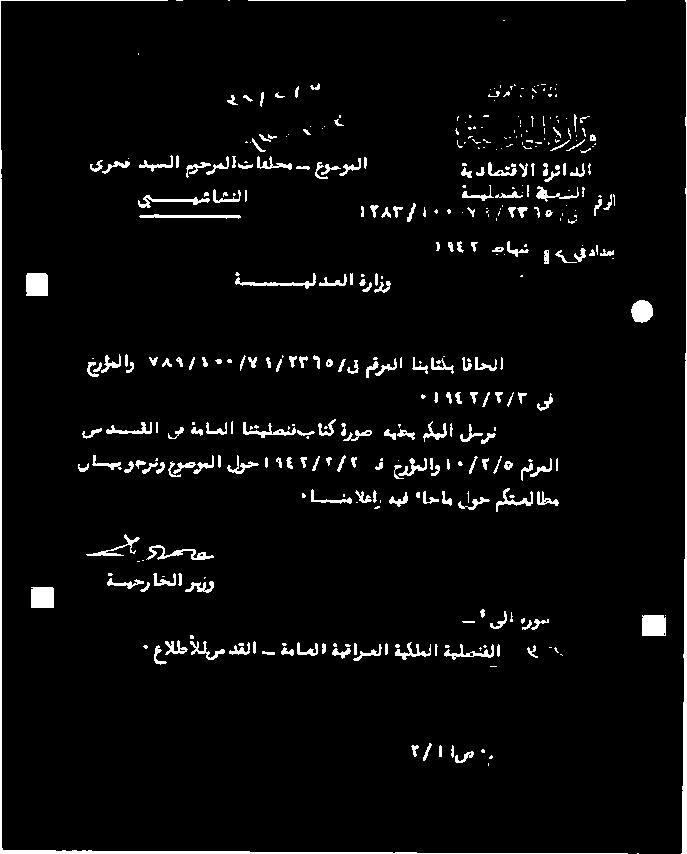 وزارة الخارجية
الدائرة الاقتصادية
الشعبة القنصلية
الرقم ق/٢٣٦٥/٧٩/١٠٠/١٣٨٣
بغداد في شباط ١٩٤٢
الموضوع ــ مخلفات المرحوم السيد فخري
النشاشيبي
وزارة العدلية
الحاقا بكتابنا المرقم ق/٢٣٦٥/٧٩/١٠٠/٧٨٩ والمؤرخ
في ١٩٤٢/٢/٣ ٠
نرسل اليكم بطيه صورة كتاب قنصليتنا العامة في القدس
المرقم ١٠/٢/٥ والمؤرخ في ١٩٤٢/٢/٢ حول الموضوع ونرجو بيان
مطالعتكم حول ماجاء فيه واعلامنا ٠
وزير الخارجية
صورة الى ــ
القنصلية الملكية العراقية العامة ــ القدس للأطلاع ٠